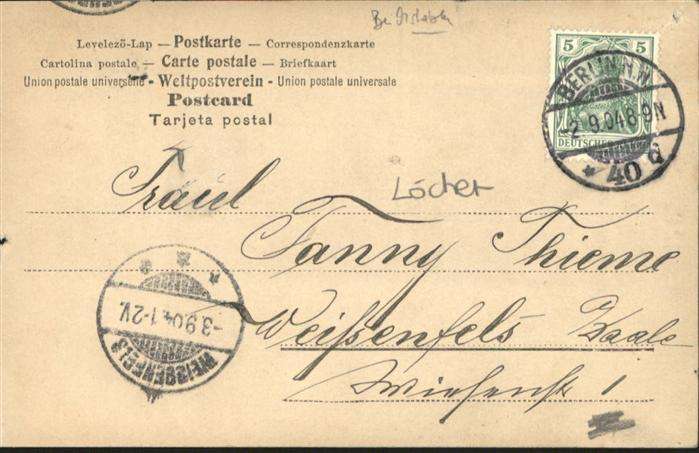 Levelező-Lap — Postkarte — Correspondenzkarte
Cartolina postale — Carte postale — Briefkaart
Union postale universelle - Weltpostverein - Union postale universale
Postcard
Tarjeta postal
5 5
DEUTSCHES
BERLIN N.W.
-2.9.04.8-9N
* 40 d
Löcher
Fräul
Fanny Thieme
Weißenfels Saale
Wiesenstr 1
WEISSENFELS
-3.9.04.1-2V.